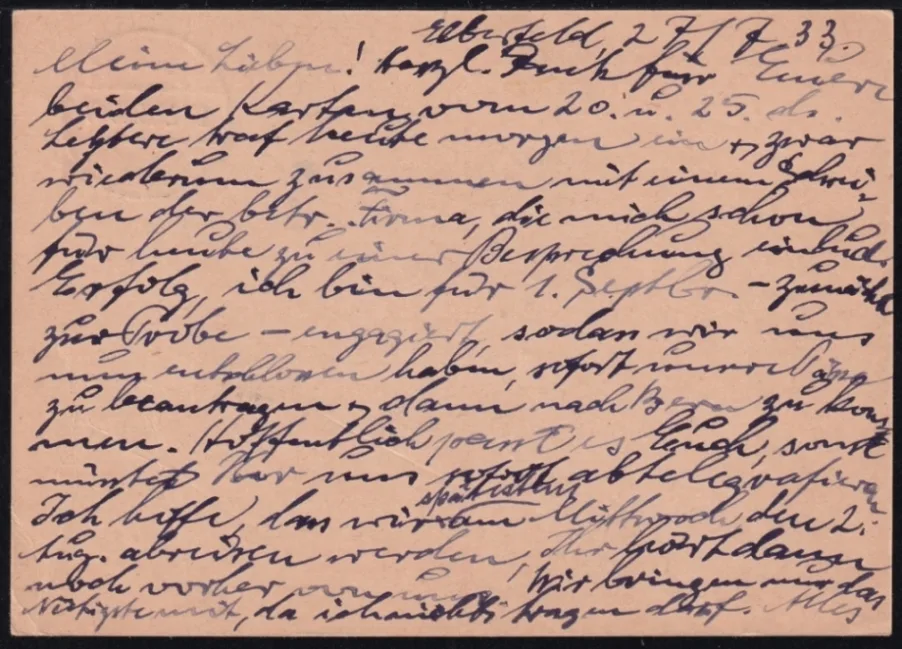 Elberfeld, 27/7 33.
Meine Lieben! Herzl. Dank für Euere
beiden Karten vom 20. u. 25. ds.
Letztere traf heute morgen ein & zwar
wiederum zusammen mit einem Schrei-
ben der betr. Firma, die mich schon
für heute zu einer Besprechung einlud.
Erfolg, ich bin für 1. Septbr. - zunächst
zur Probe - engagiert, sodass wir uns
nun entschlossen haben, sofort unsere Pässe
zu beantragen & dann nach Bern zu kom-
men. Hoffentlich passt es Euch, sonst
müsstet Ihr uns sofort abtelegrafieren
Ich hoffe, dass wir spätestens am Mittwoch den 2.
Aug. abreisen werden, Ihr hört dann
noch vorher von uns. Wir bringen nur das
Nötigste mit, da ich nichts tragen darf. Alles